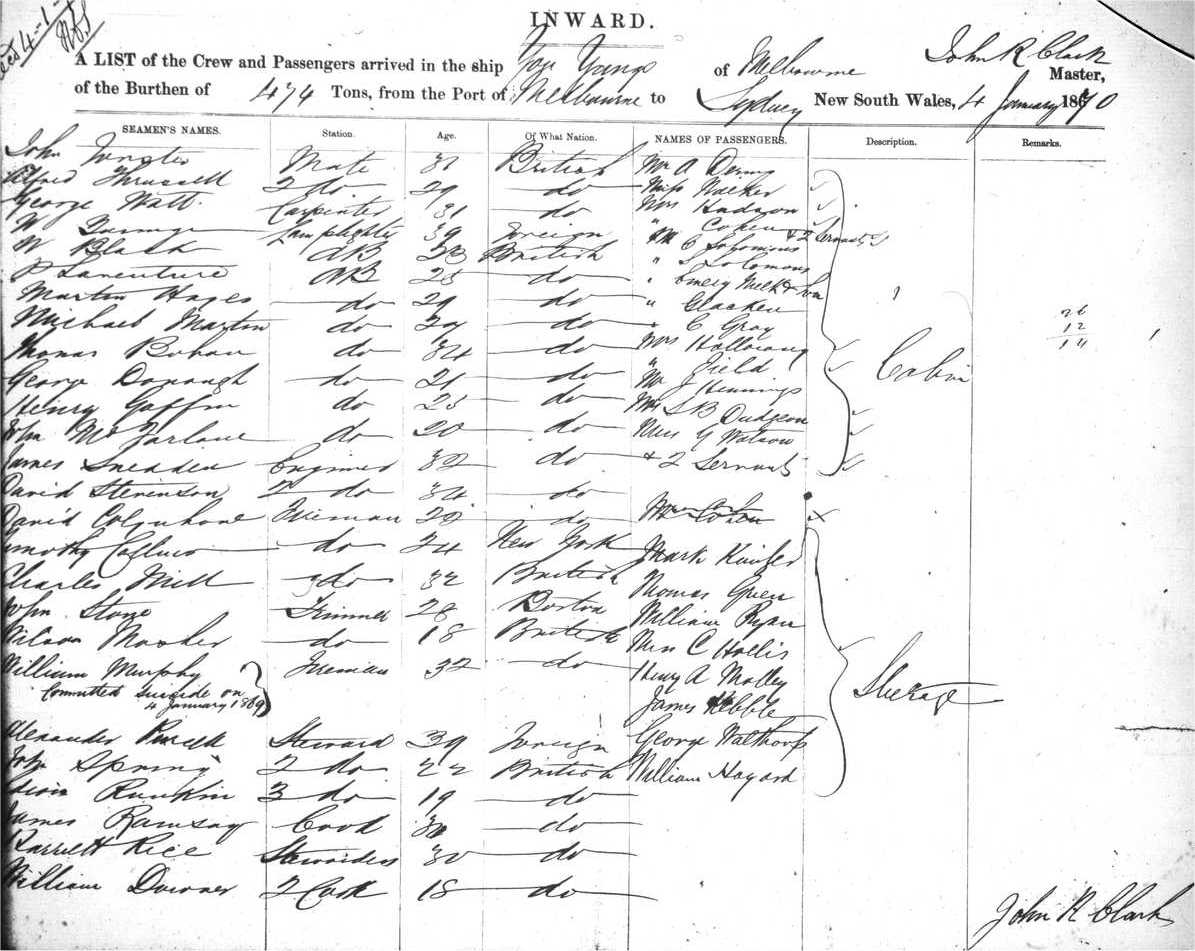 INWARD.
A LIST of the Crew and Passengers arrived in the ship You Yangs of Melbourne John R Clark Master,
of the Burthen of 474 Tons, from the Port of Melbourne to Sydney New South Wales, 4 January 1870
SEAMEN'S NAMES. Station. Age. Of What Nation. NAMES OF PASSENGERS. Description. Remarks.
John Mate 31 British Mr A Denny
Alfred Thrussell 2 do 29 do Miss Walker
George Watt Carpenter 31 do Mrs Hudson
W Lamplighter 39 Foreign " Cohen & 2 Servants
W Black AB 23 British Mr C Solomons
P AB 25 do " S Solomons
Martin Hayes do 29 do " Emery Wife & Son
Michael Martin do 29 do " Gracken
Thomas Bohan do 34 do " C Gray
George Donough do 21 do Mrs Holloway
Henry Gaffin do 25 do " Field
John McFarlane do 20 do Mr J Hennings
James Sneaden Engineer 32 do Mr S B Dudgeon
Miss G Watson
& 2 Servants
Cabin
26
12
14
David Stevenson 2 do 34 do
David Colquhone Fireman 28 do Mr Cohen
Timothy Collins do 24 New York Mark
Charles Mill do 32 British Thomas Green
John Stone Trimmer 28 Boston William Ryan
Wilson Mosher do 18 British Mrs C Hollis
William Murphy Fireman 32 do Henry A Molley
Committed Suicide on
4 January 1869
James Kebble
Steerage
Alexander Steward 39 Foreign George
John Spring 2 do 22 British William Hazard
Rankin 3 do 19 do
James Ramsay Cook 30 do
Barrett Rice Stewardess 30 do
William Downer 2 Cook 18 do
John R Clark